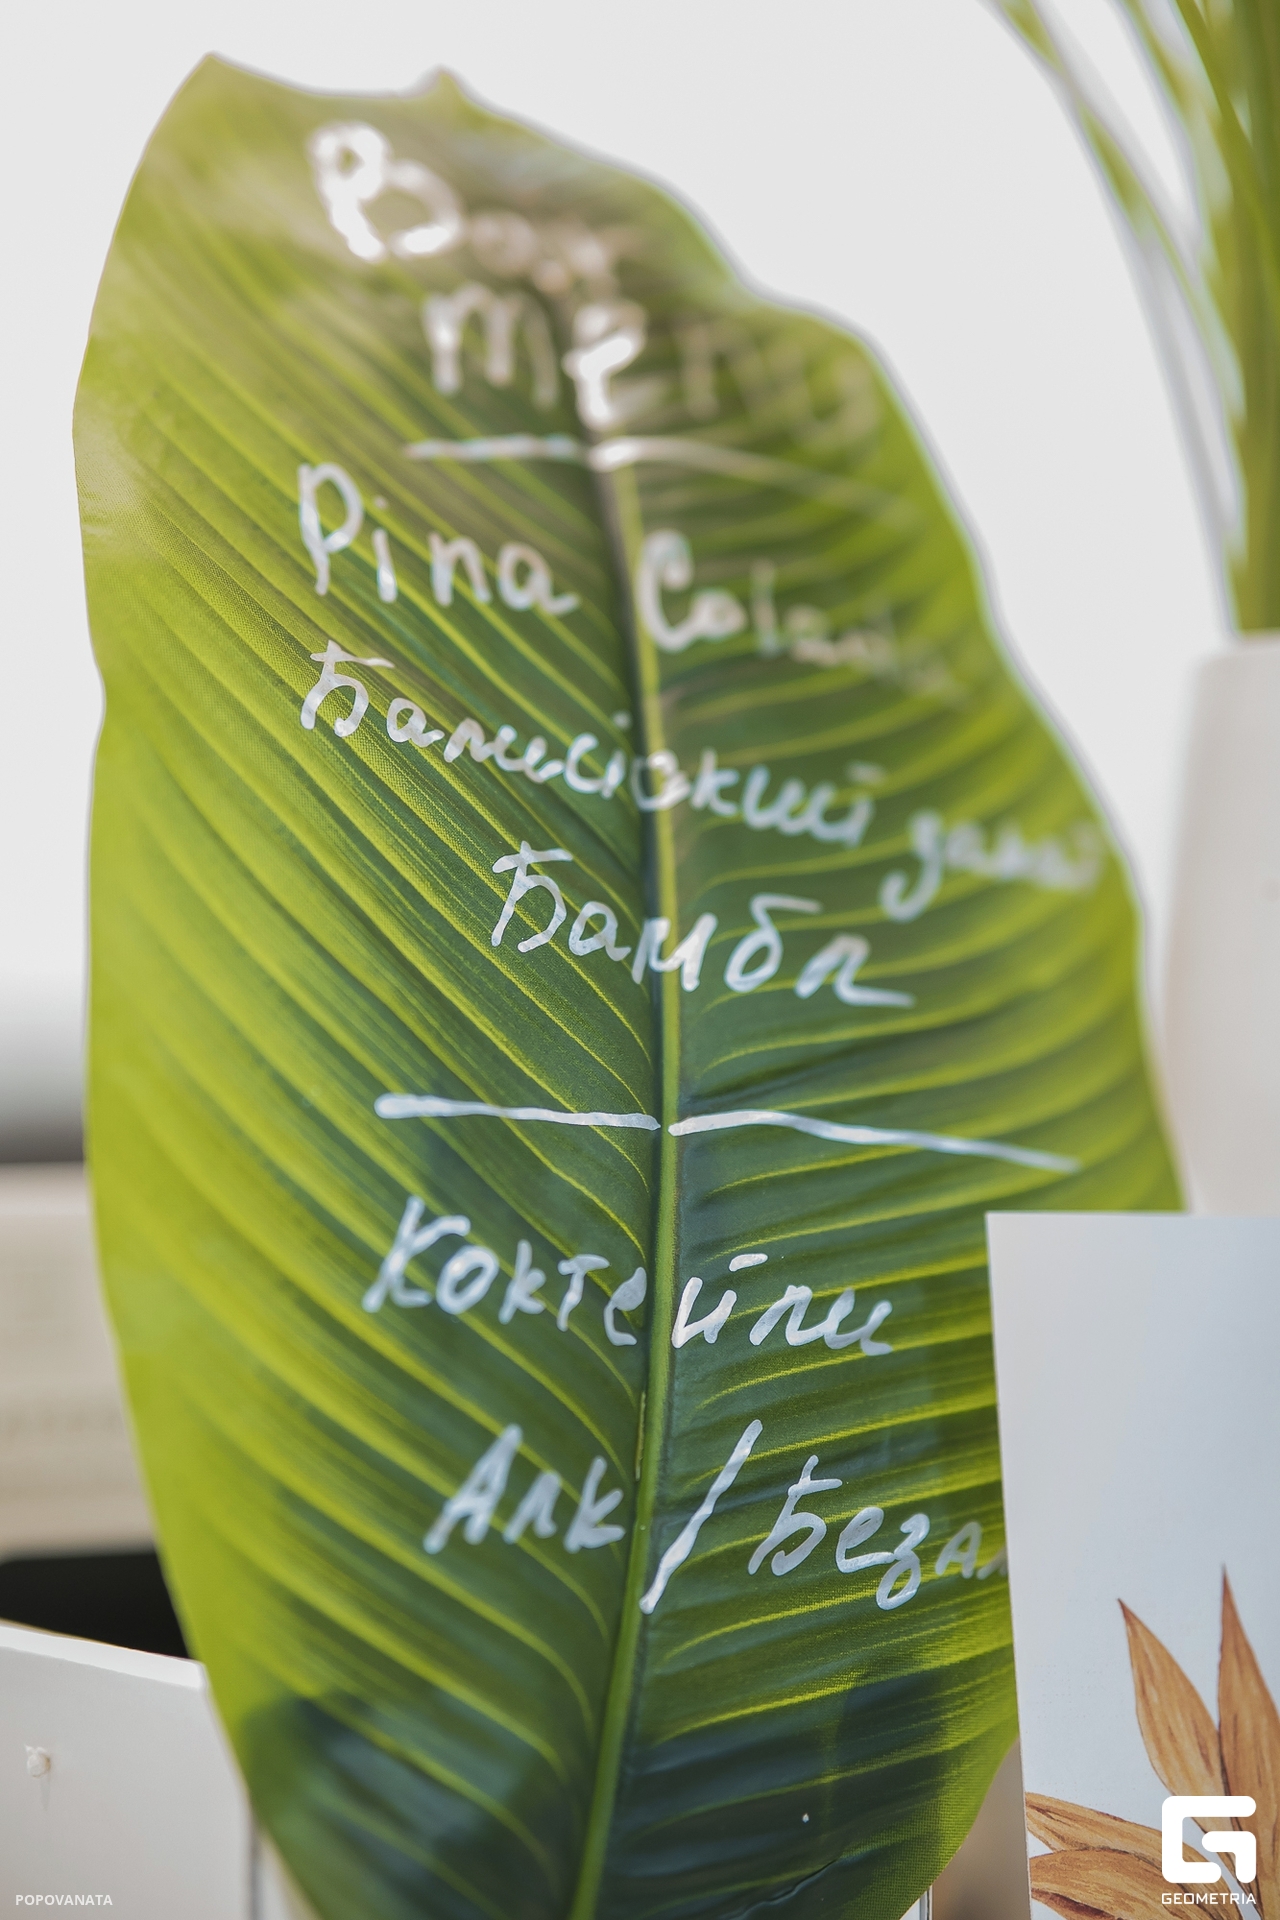 Bar
menu
Pina Colada
Балийский закат
Бамбл
Коктейли
Алк / Безал
POPOVANATA
GEOMETRIA